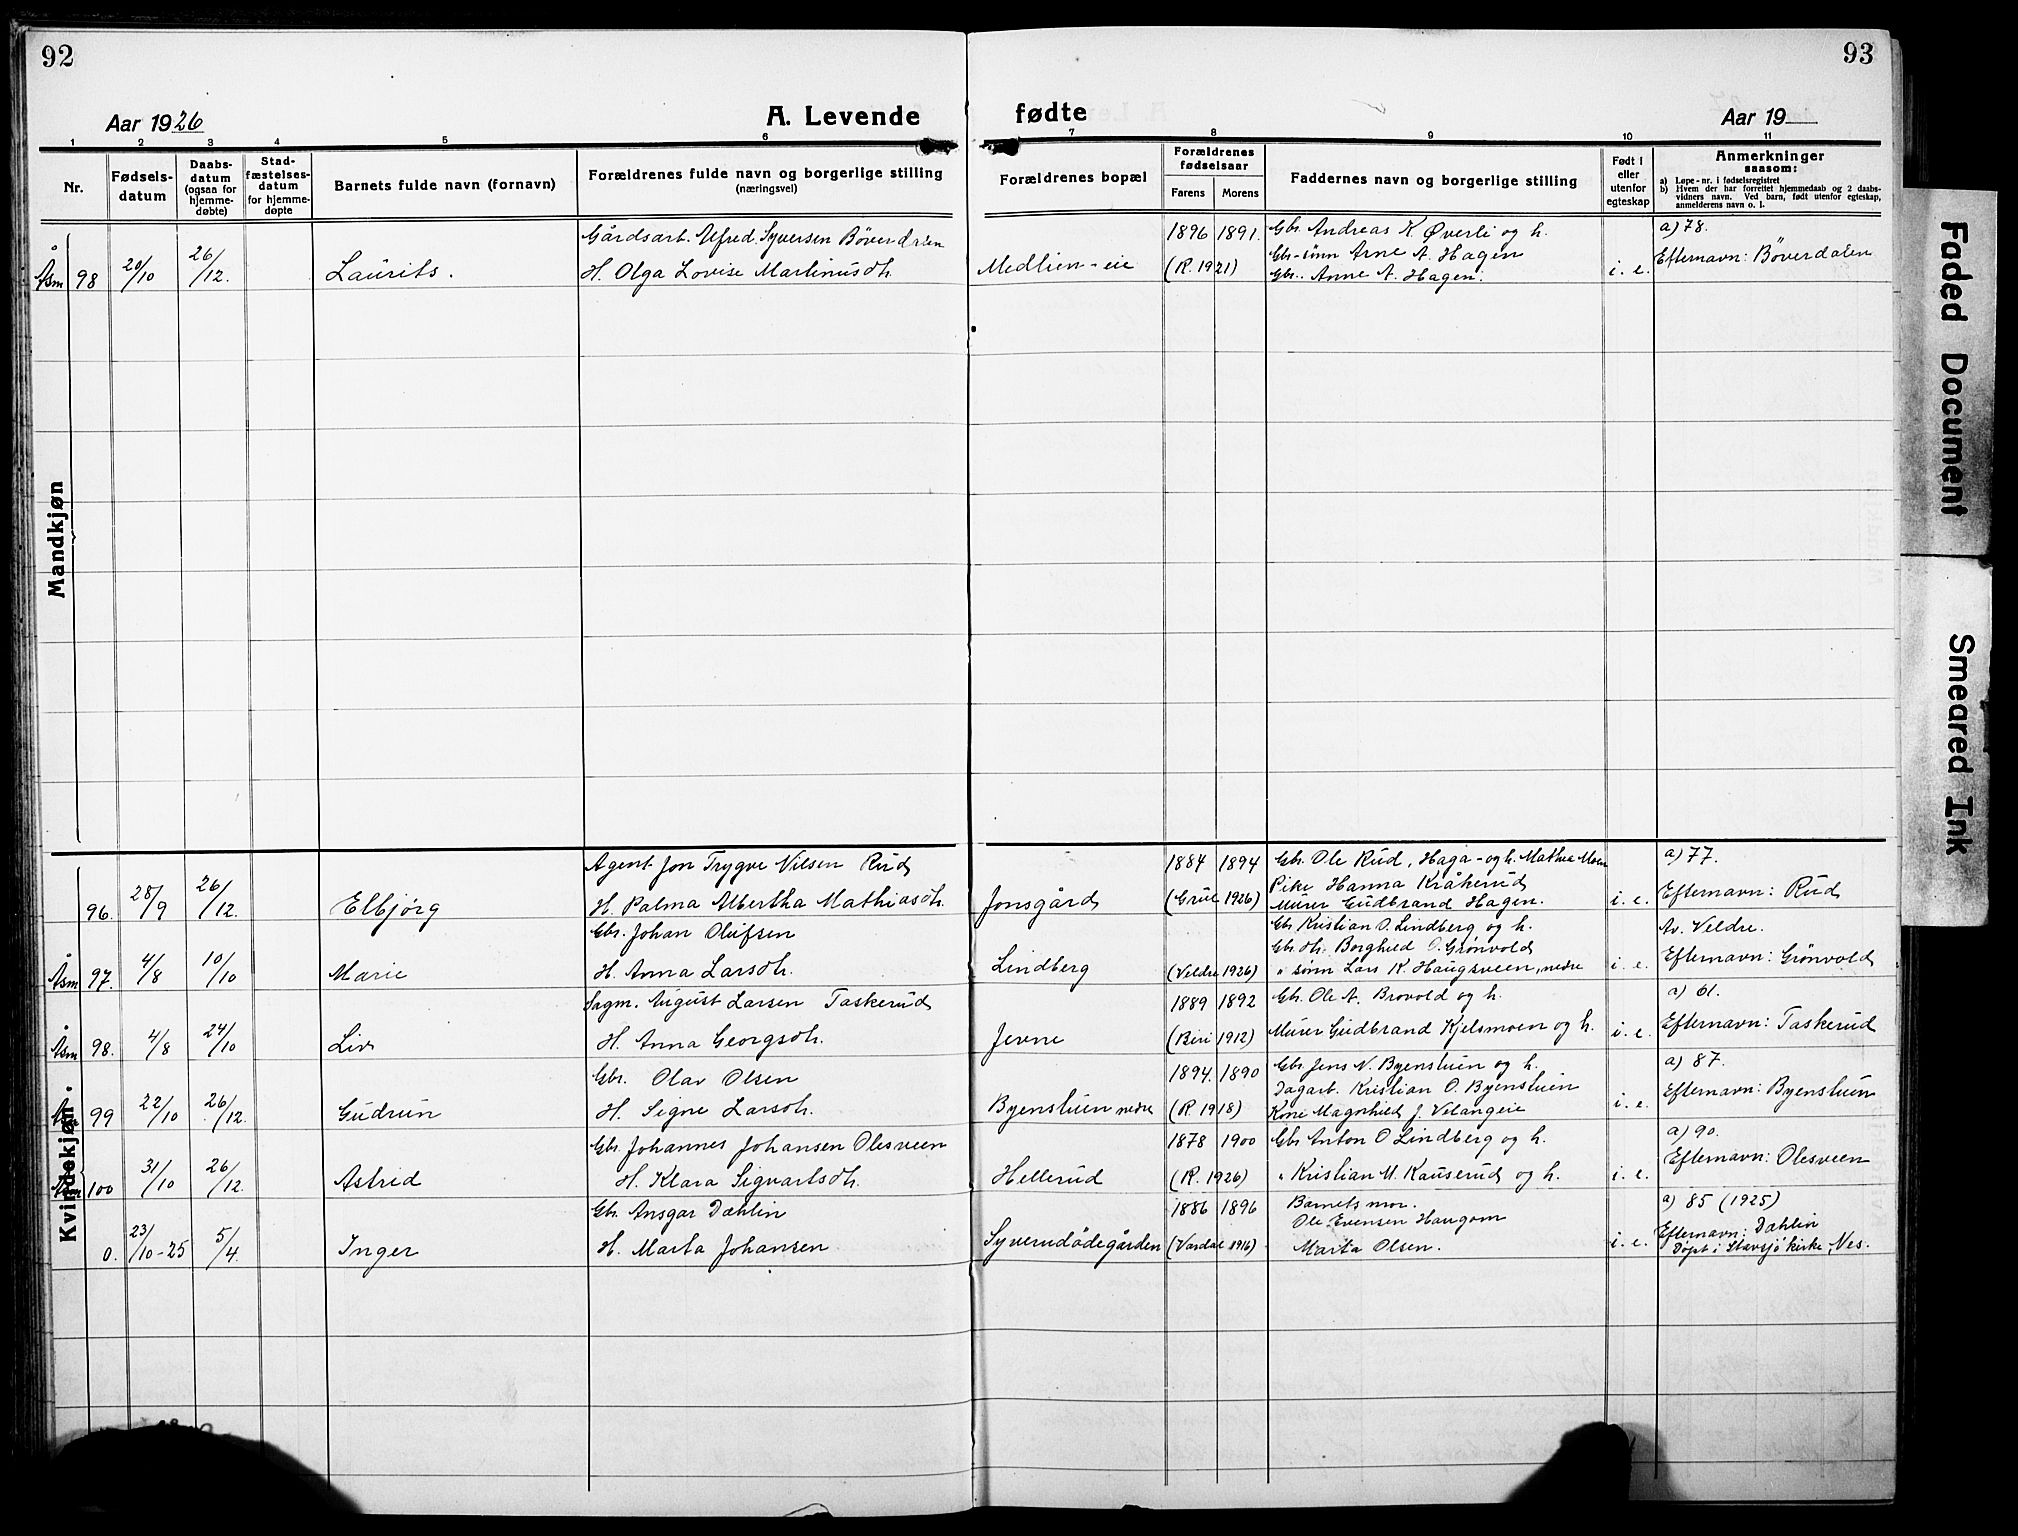 92
93
Aar 1926
A. Levende
fødte
Aar 19
1 2 3 4 5 6 7 8 9 10 11
Nr.
Fødsels-
datum
Daabs-
datum
(ogsaa for
hjemme-
døbte)
Stad-
fæstelses-
datum
for hjemme-
døpte
Barnets fulde navn (fornavn)
Forældrenes fulde navn og borgerlige stilling
(næringsvei)
Forældrenes bopæl
Forældrenes
fødselsaar
Farens Morens
Faddernes navn og borgerlige stilling
Født i
eller
utenfor
egteskap
Anmerkninger
saasom:
a) Løpe-nr. i fødselsregistret
b) Hvem der har forrettet hjemmedaab og 2 daabs-
vidners navn. Ved barn, født utenfor egteskap,
anmelderens navn o. l.
Mandkjøn
Gårdsarb. Alfred Syversen Bøverdalen 1896 1891. Gbr. Andreas K. Øverli og h. a) 78.
Åsm 98 20/10 26/12. Laurits. H. Olga Lovise Martinusdtr. Medlien-eie (R. 1921) Gbr-sønn Arne A. Hagen i. e. Efternavn: Bøverdalen
Gbr.. Anne A. Hagen.
Kvindekjøn.
Agent Jon Trygve Nilsen Rud 1884 1894 Gbr. Ole Rud, Haga- og h. Mathea Moen a) 77.
96. 28/9 26/12. Elbjørg H. Palma Albertha Mathiasdtr. Jonsgård (Grue 1926) Pike Hanna Kråkerud i. e. Efternavn: Rud
Murer Gudbrand Hagen.
Gbr. Johan Olufsen Gbr Kristian O. Lindberg og h. Av. Veldre.
Åsm 97. 4/8 10/10 Marie H. Anna Larsdtr. Lindberg (Veldre 1926) Gbr dtr. Borghild O. Grønvold i. e. Efternavn: Grønvold
" sønn Lars K. Haugsveen, nedre
Sagm. August Larsen Taskerud 1889 1892 Gbr. Ole A. Brovold og h. a) 61.
Åsm 98. 4/8 24/10 Liv H. Anna Georgsdtr. Jevne (Biri 1912) Murer Gudbrand Kjelsmoen og h. i. e. Efternavn: Taskerud
Gbr. Olav Olsen 1894. 1890 Gbr. Jens N. Byenstuen og h. a) 87.
Åsm 99 22/10 26/12. Gudrun H. Signe Larsdtr. Byenstuen nedre (R. 1918) Dagarb. Kristian O. Byenstuen i. e. Efternavn: Byenstuen
Kone Magnhild J. Velangeie
Gbr. Johannes Johansen Olesveen 1878 1900 Gbr Anton O Lindberg og h. a) 90.
Åsm 100 31/10 26/12. Astrid H. Klara Sigvartsdtr. Hellerud (R. 1926) " Kristian M. Kauserud og h. i. e. Efternavn: Olesveen
Gbr. Ansgar Dæhlin 1886 1896 Barnets mor. a) 85 (1925)
0. 23/10-25 5/4. Inger H. Marta Johansen Syverudødegården (Vardal 1916) Ole Evensen Haugom i. e. Efternavn: Dæhlin
Marta Olsen. Døpt i Stavsjø kirke, Nes.
Faded Document
Smeared Ink